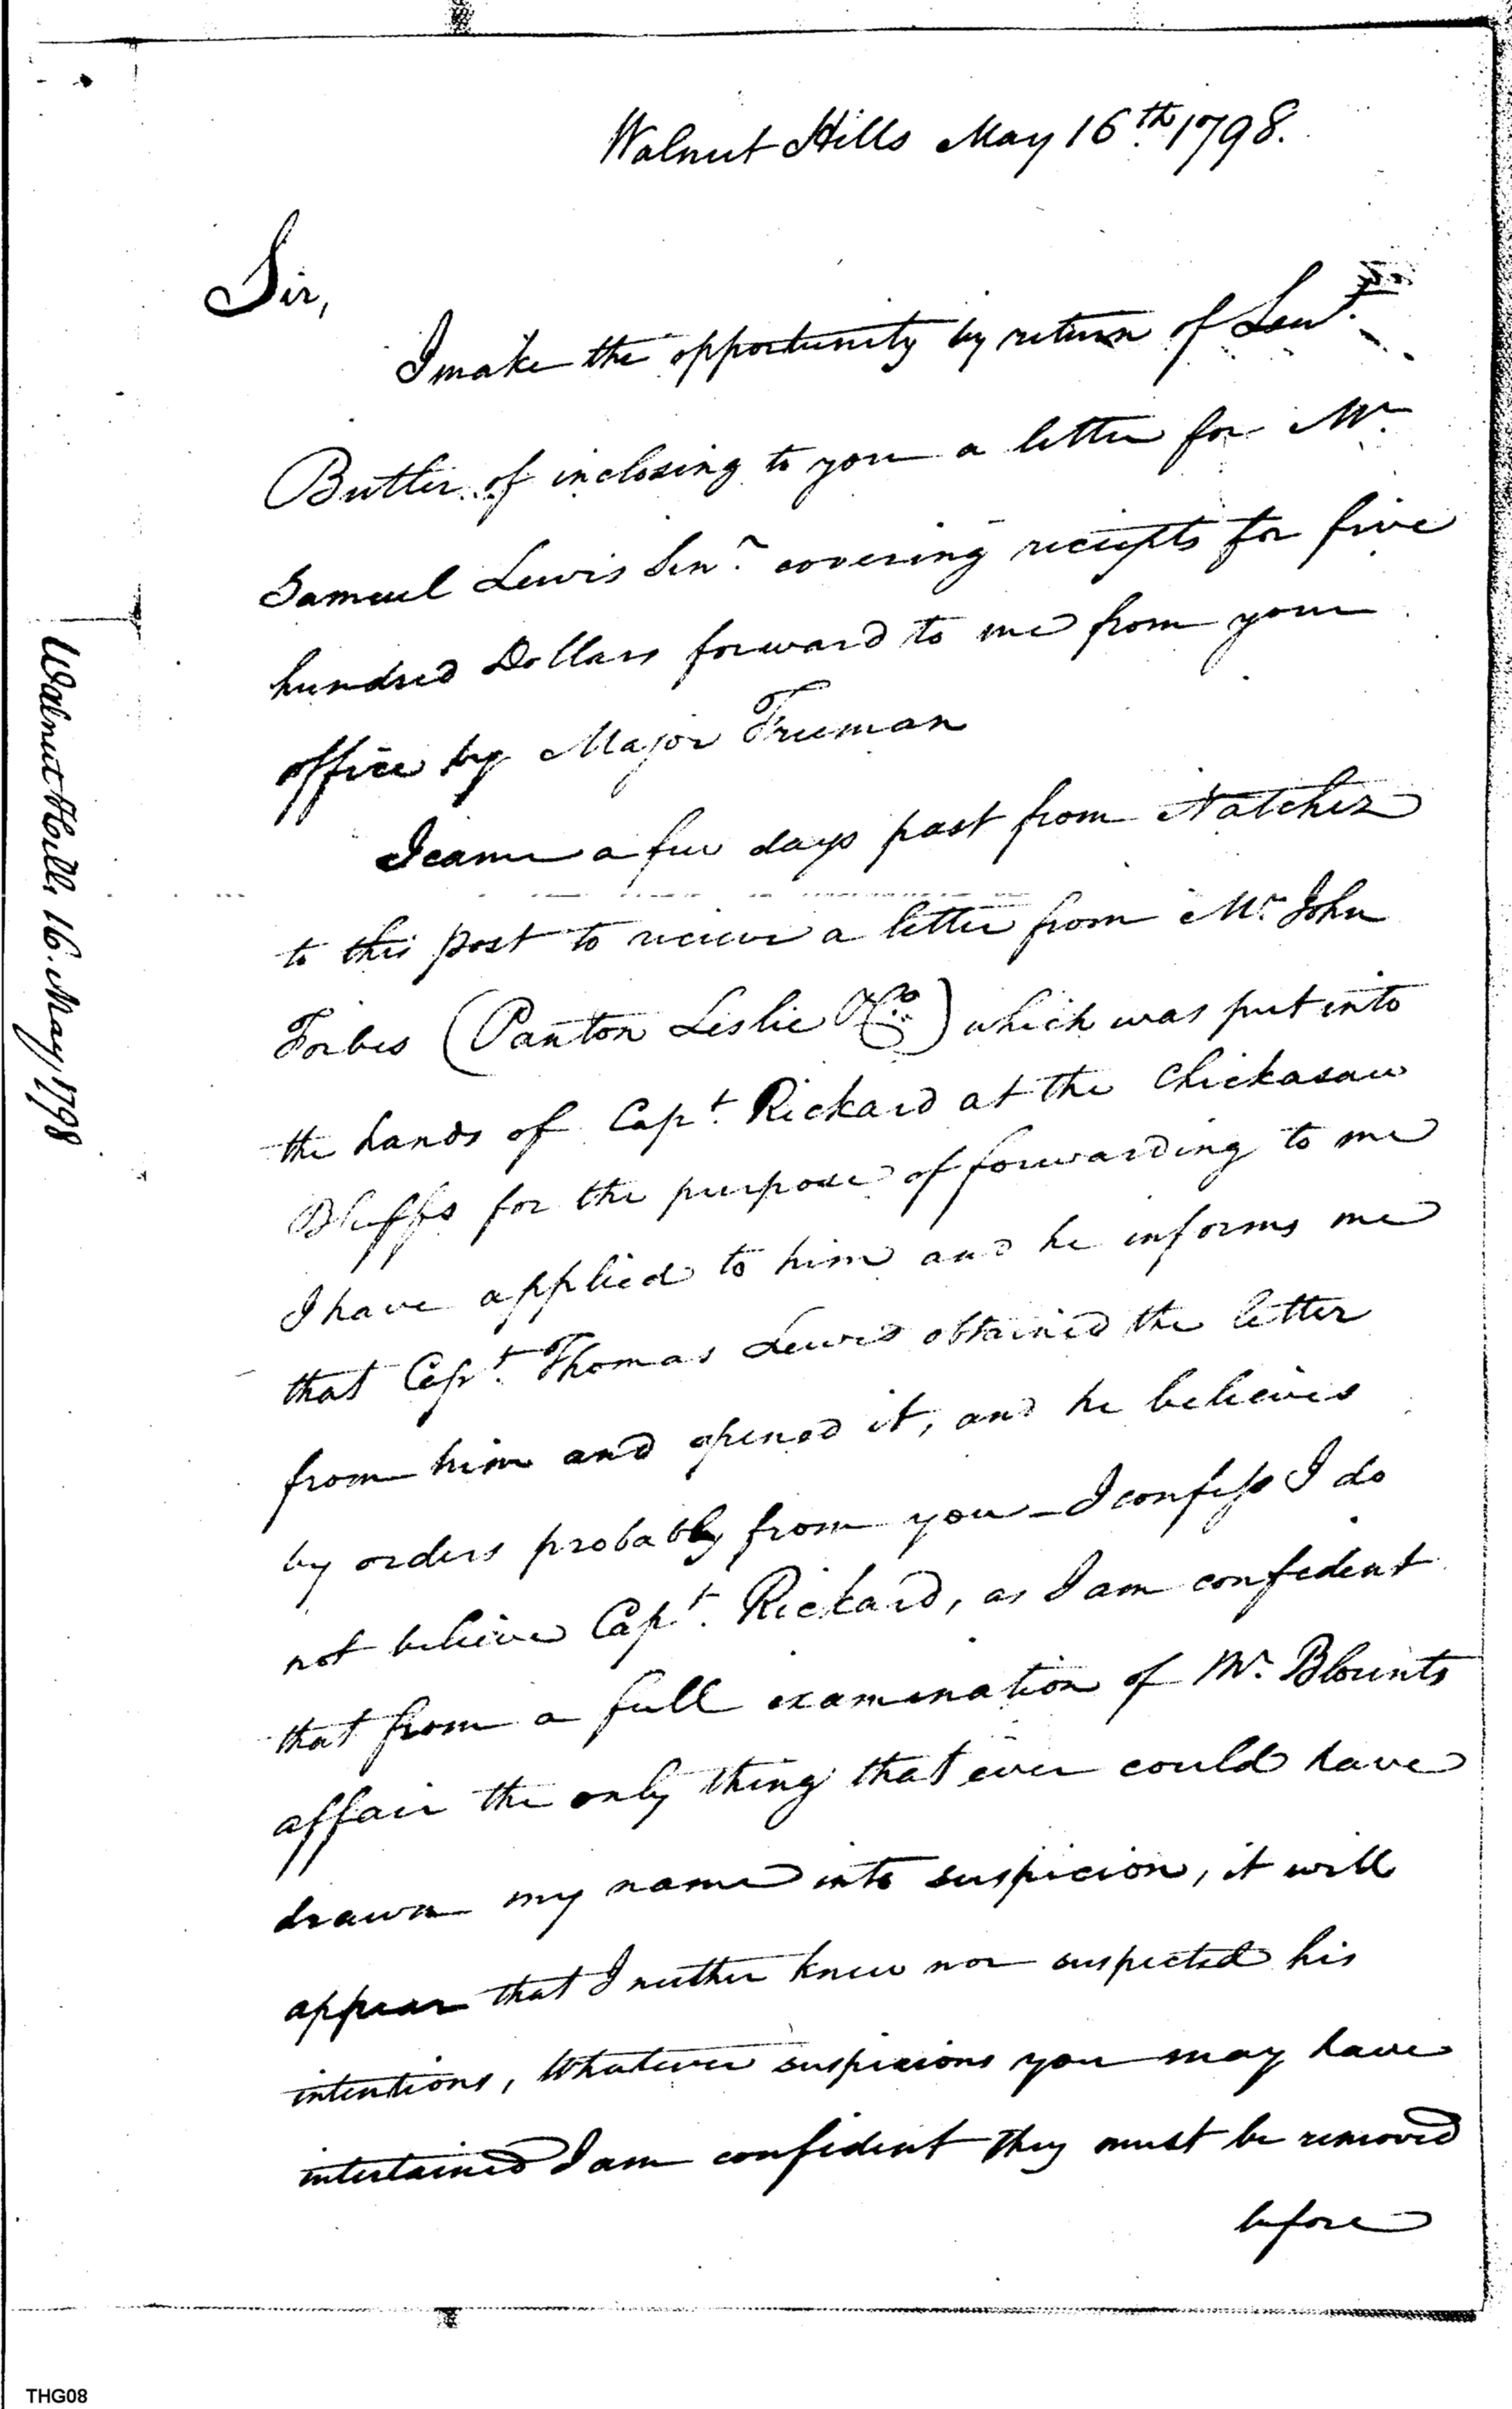 Walnut Hills May 16th. 1798.
Sir,
I make the opportunity by return of Leut.
Butler of inclosing to you a letter for Mr.
Samuel Lewis Senr. covering reciepts for five
hundred Dollars forward to me from your
office by Major Freeman
I came a few days past from Natchez
to this post to recieve a letter from Mr. John
Forbes (Panton Leslie & Co.) which was put into
the hands of Capt. Rickard at the Chickasaw
Bluffs for the purpose of forwarding to me
I have applied to him and he informs me
that Capt. Thomas Lewis obtained the letter
from him and opened it, and he believes
by orders probably from you – I confess I do
not believe Capt. Rickard, as I am confident
that from a full examination of Mr. Blounts
affair the only thing that ever could have
drawn my name into suspicion, it will
appear that I neither knew nor suspected his
intentions, Whatever suspicions you may have
intertained I am confident they must be removed
before
Walnut Hills 16. May, 1798
THG08